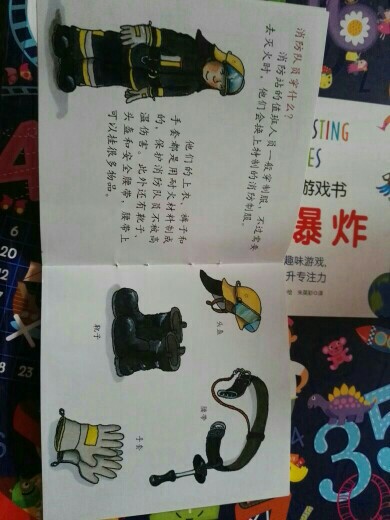 消防队员穿什么？
消防站的值班人员一般穿制服，不过需要
去灭火时，他们会换上特制的消防制服。
他们的上衣、裤子和
手套都是用耐火材料制成
的，保护消防队员不被高
温伤害。此外还有靴子、
头盔和安全腰带，腰带上
可以挂很多物品。
头盔
靴子
腰带
手套
STING
ES
游戏书
爆炸
趣味游戏，
升专注力
4
6
20
8 23
35